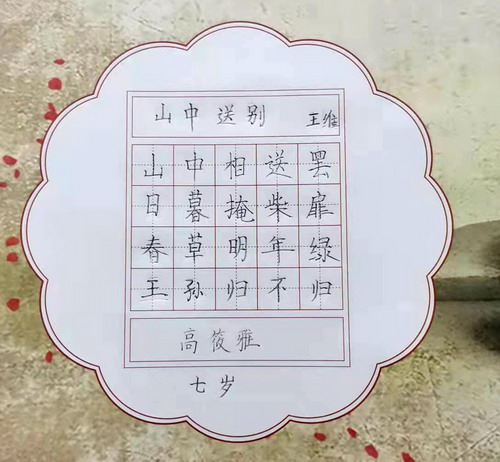 山中送别 王维
山中相送罢
日暮掩柴扉
春草明年绿
王孙归不归
高筱雅
七岁